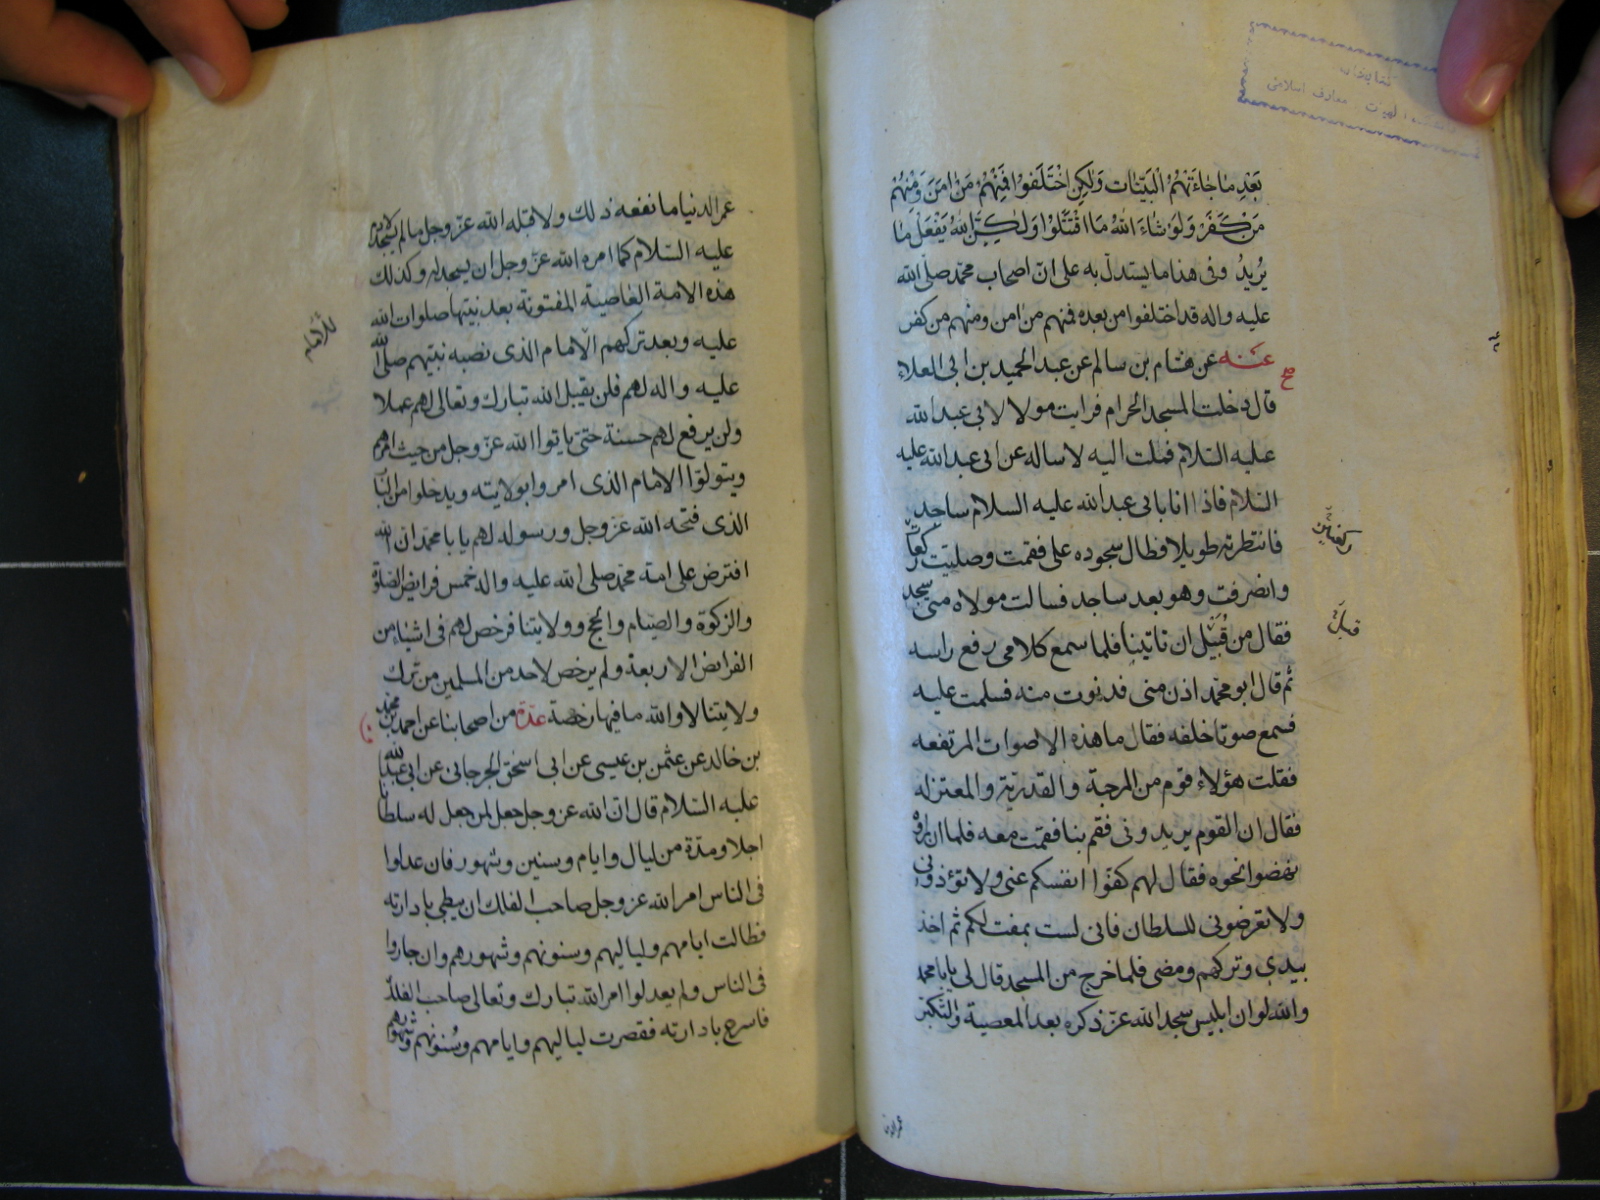 كتابخانه
معارف اسلامى
بَعْدِ مٰا جٰاءَتْهُمُ الْبَيِّنٰاتُ وَلٰكِنِ اخْتَلَفُوا فَمِنْهُمْ مَنْ اٰمَنَ وَمِنْهُمْ
مَنْ كَفَرَ وَلَوْ شٰاءَ اللّٰهُ مَا اقْتَتَلُوا وَلٰكِنَّ اللّٰهَ يَفْعَلُ مٰا
يُرِيدُ وفى هذا ما يستدل به على انّ اصحاب محمّد صلّى الله
عليه واله قد اختلفوا من بعده فمنهم من امن ومنهم من كفر
عَنه عن هشام بن سالم عن عبد الحميد بن ابى العلاء
قال دخلت المسجد الحرام فرايت مولا لابى عبد الله
عليه السّلام فملت اليه لاساله عن ابى عبد الله عليه
السّلام فاذا انا بابى عبد الله عليه السلام ساجد
فانتظرته طويلا فطال سجوده على فقمت وصليت ركعات
وانصرفت وهو بعد ساجد فسالت مولاه متى سجد
فقال من قُبَيْل ان تاتينا فلما سمع كلامى رفع راسه
ثم قال ابو محمّد ادن منى فدنوت منه فسلمت عليه
فسمع صوتا خلفه فقال ما هذه الاصوات المرتفعه
فقلت هؤلاء قوم من المرجئة والقدريّة والمعتزله
فقال ان القوم يريدونى فقم بنا فقمت معه فلما ان راوه
نهضوا نحوه فقال لهم كفّوا انفسكم عنى ولا تؤذونى
ولا تعرضونى للسلطان فانى لست بمفت لكم ثم اخذ
بيدى وتركهم ومضى فلما خرج من المسجد قال لى يا با محمد
والله لو ان ابليس سجد الله عزّ ذكره بعد المعصية والتكبّر
عمر الدنيا
عمر الدنيا ما نفعه ذلك ولا قبله الله عزّ وجل ما لم يسجد لادم
عليه السّلام كما امره الله عزّ وجل ان يسجد له وكذلك
هذه الامة العاصية المفتونة بعد نبيّها صلوات الله
عليه وبعد تركهم الامام الذى نصبه نبيّهم صلّى الله
عليه واله لهم فلن يقبل الله تبارك وتعالى لهم عملا
ولن يرفع لهم حسنة حتى ياتوا الله عزّ وجل من حيث امرهم
ويتولّوا الامام الذى امروا بولايته ويدخلوا من الباب
الذى فتحه الله عزّ وجل ورسوله لهم يا با محمّد ان الله
افترض على امة محمّد صلى الله عليه واله خمس فرايض الصّلوة
والزكوة والصّيام والحج وولايتنا فرخص لهم فى اشياء من
الفرايض الاربعة ولم يرخص لاحد من المسلمين من ترك
ولايتنا لا والله ما فيها رخصة عدّة من اصحابنا عن احمد بن محمّد
بن خالد عن عثمن بن عيسى عن ابى اسحق الجرجانى عن ابى عبد الله
عليه السّلام قال انّ الله عزّ وجل جعل لمن جعل له سلطانا
اجلا ومدّة من ليال وايام وسنين وشهور فان عدلوا
فى الناس امر الله عزّ وجل صاحب الفلك ان يبطئ بادارته
فطالت ايامهم ولياليهم وسنونهم وشهورهم وان جاروا
فى الناس ولم يعدلوا امر الله تبارك وتعالى صاحب الفلك
فاسرع بادارته فقصرت لياليهم وايامهم وسُنونهم وشهورهم